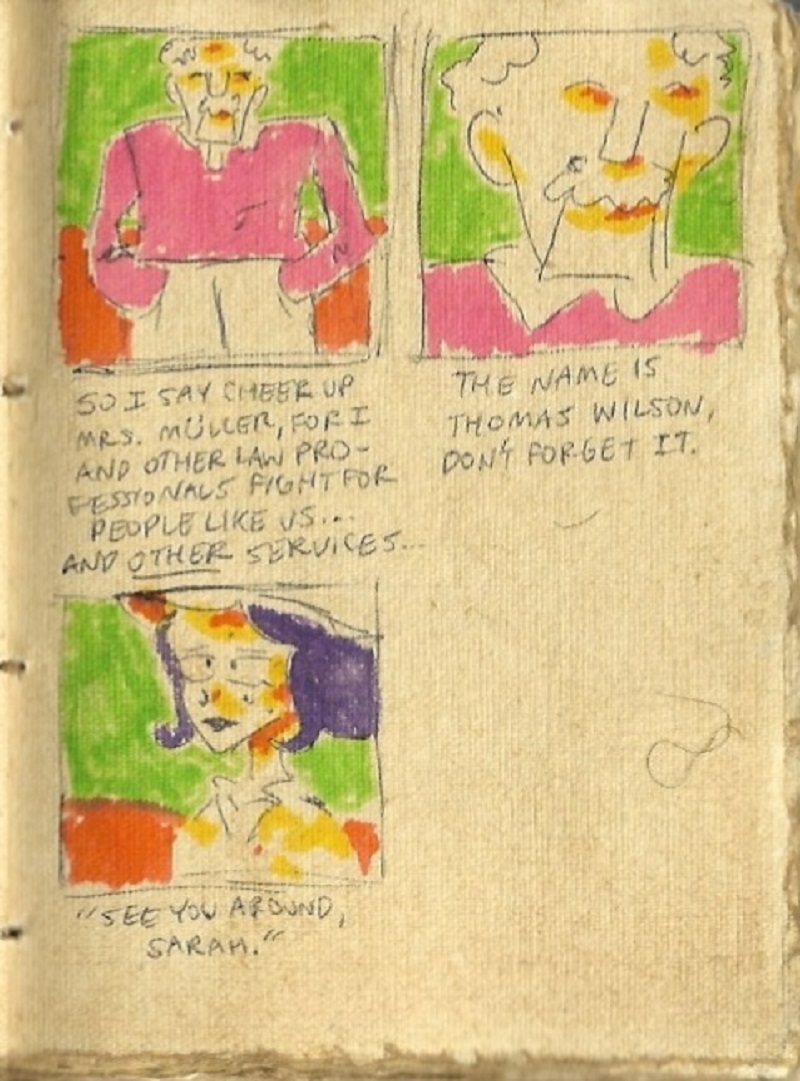 SO I SAY CHEER UP
MRS. MÜLLER, FOR I
AND OTHER LAW PRO-
FESSIONALS FIGHT FOR
PEOPLE LIKE US...
AND OTHER SERVICES...
THE NAME IS
THOMAS WILSON,
DON'T FORGET IT.
"SEE YOU AROUND,
SARAH."